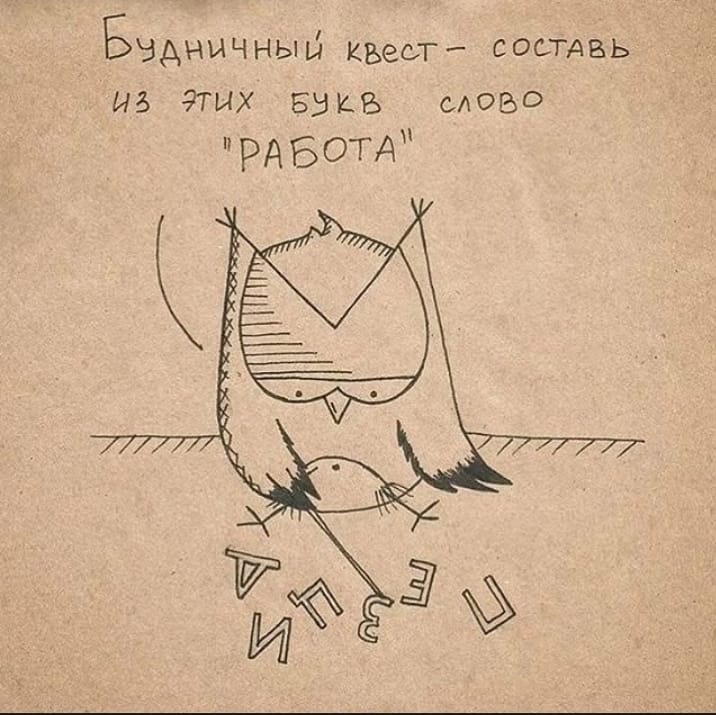 Будничный квест - составь
из этих букв слово
"РАБОТА"
Д И Ц З Е П